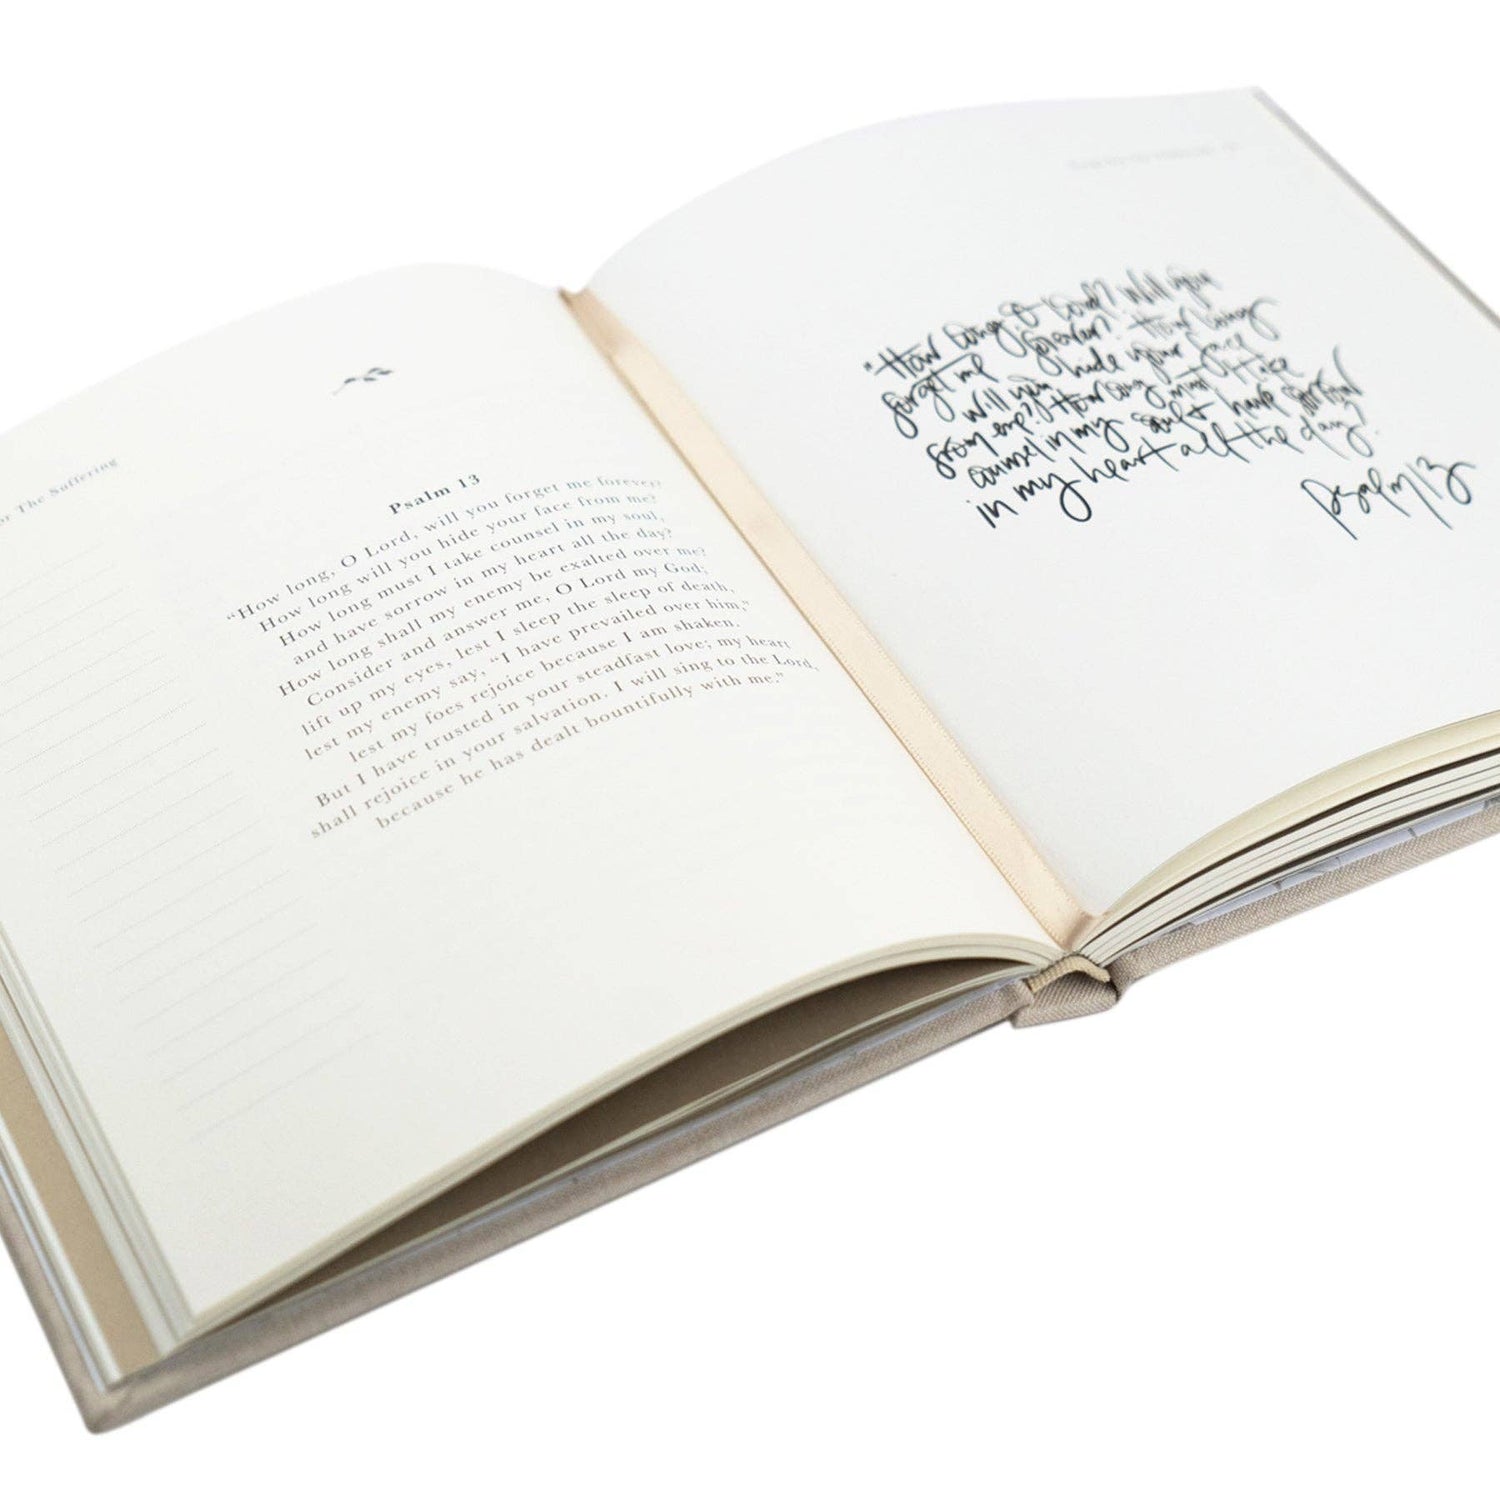 or The Suffering
Psalm 13
“How long, O Lord, will you forget me forever?
How long will you hide your face from me?
How long must I take counsel in my soul,
and have sorrow in my heart all the day?
How long shall my enemy be exalted over me?
Consider and answer me, O Lord my God;
lift up my eyes, lest I sleep the sleep of death,
lest my enemy say, “I have prevailed over him,”
lest my foes rejoice because I am shaken.
But I have trusted in your steadfast love; my heart
shall rejoice in your salvation. I will sing to the Lord,
because he has dealt bountifully with me.”
"How long, O Lord? Will you
forget me forever? How long
will you hide your face
from me? How long must I take
counsel in my soul & have sorrow
in my heart all the day?
Psalm 13